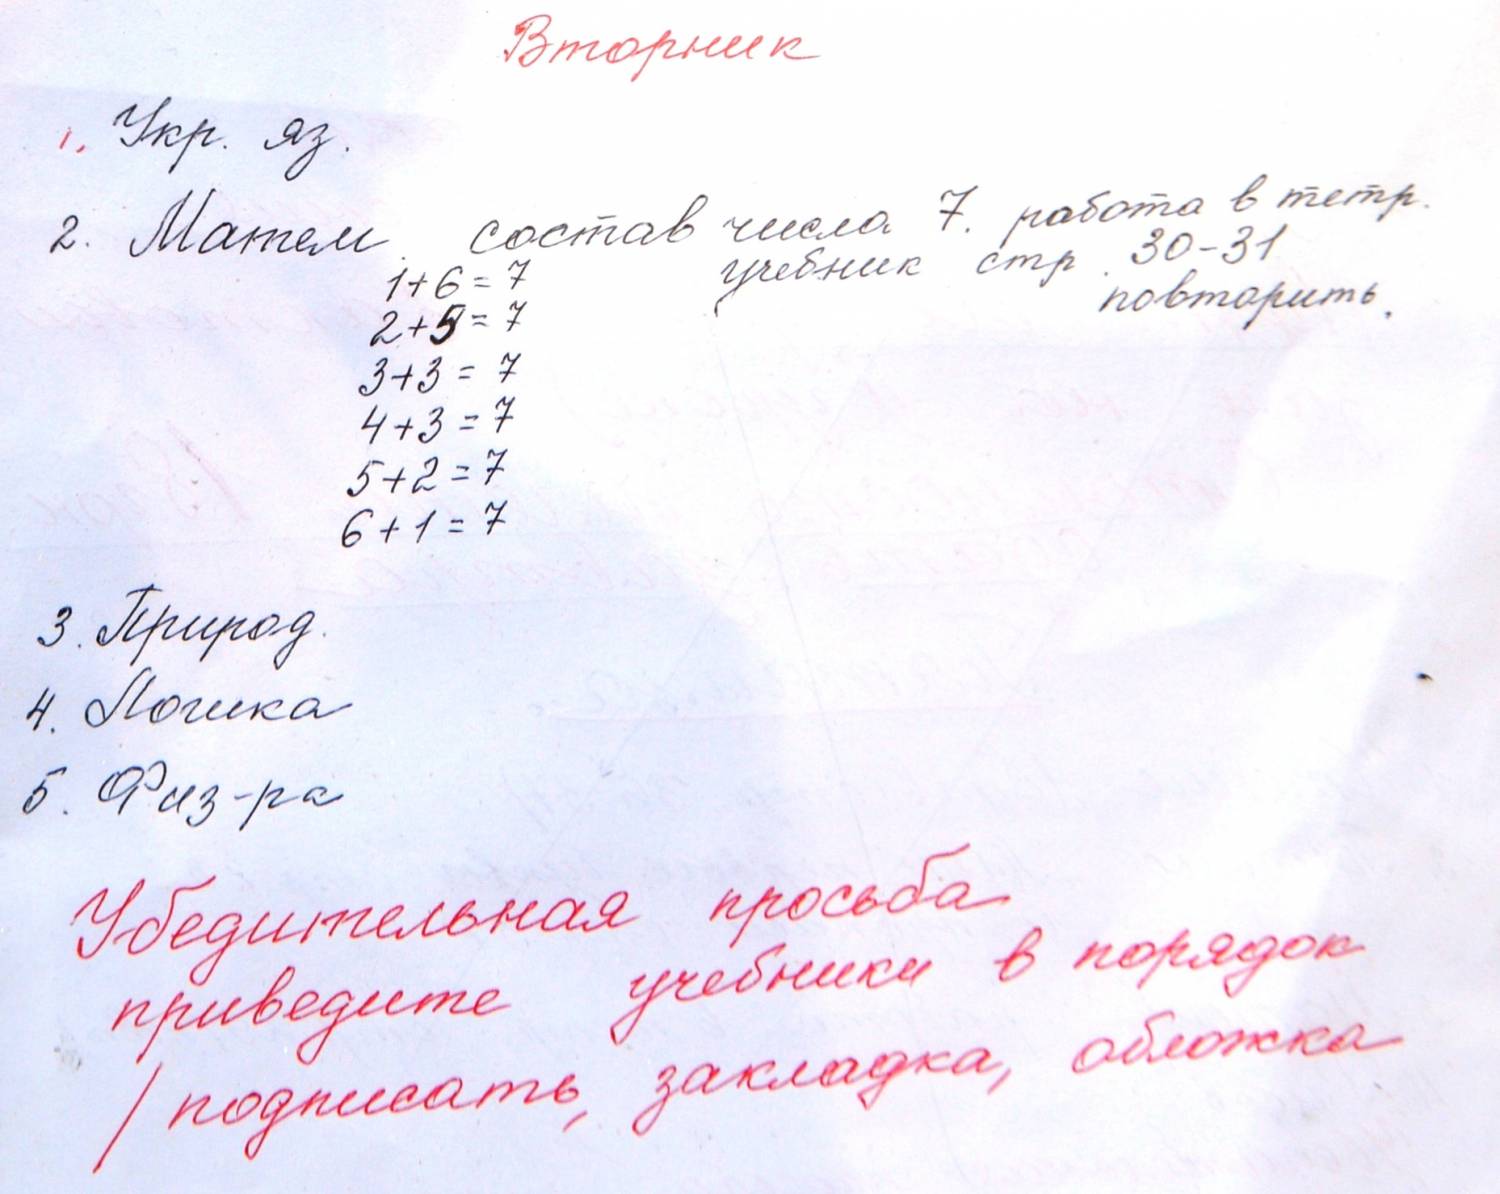 Вторник
1. Укр. яз.
2. Матем. состав числа 7. работа в тетр.
учебник стр. 30-31
повторить.
1+6=7
2+5=7
3+3=7
4+3=7
5+2=7
6+1=7
3. Природ.
4. Логика
5. Физ-ра
Убедительная просьба
приведите учебники в порядок
/подписать, закладка, обложка